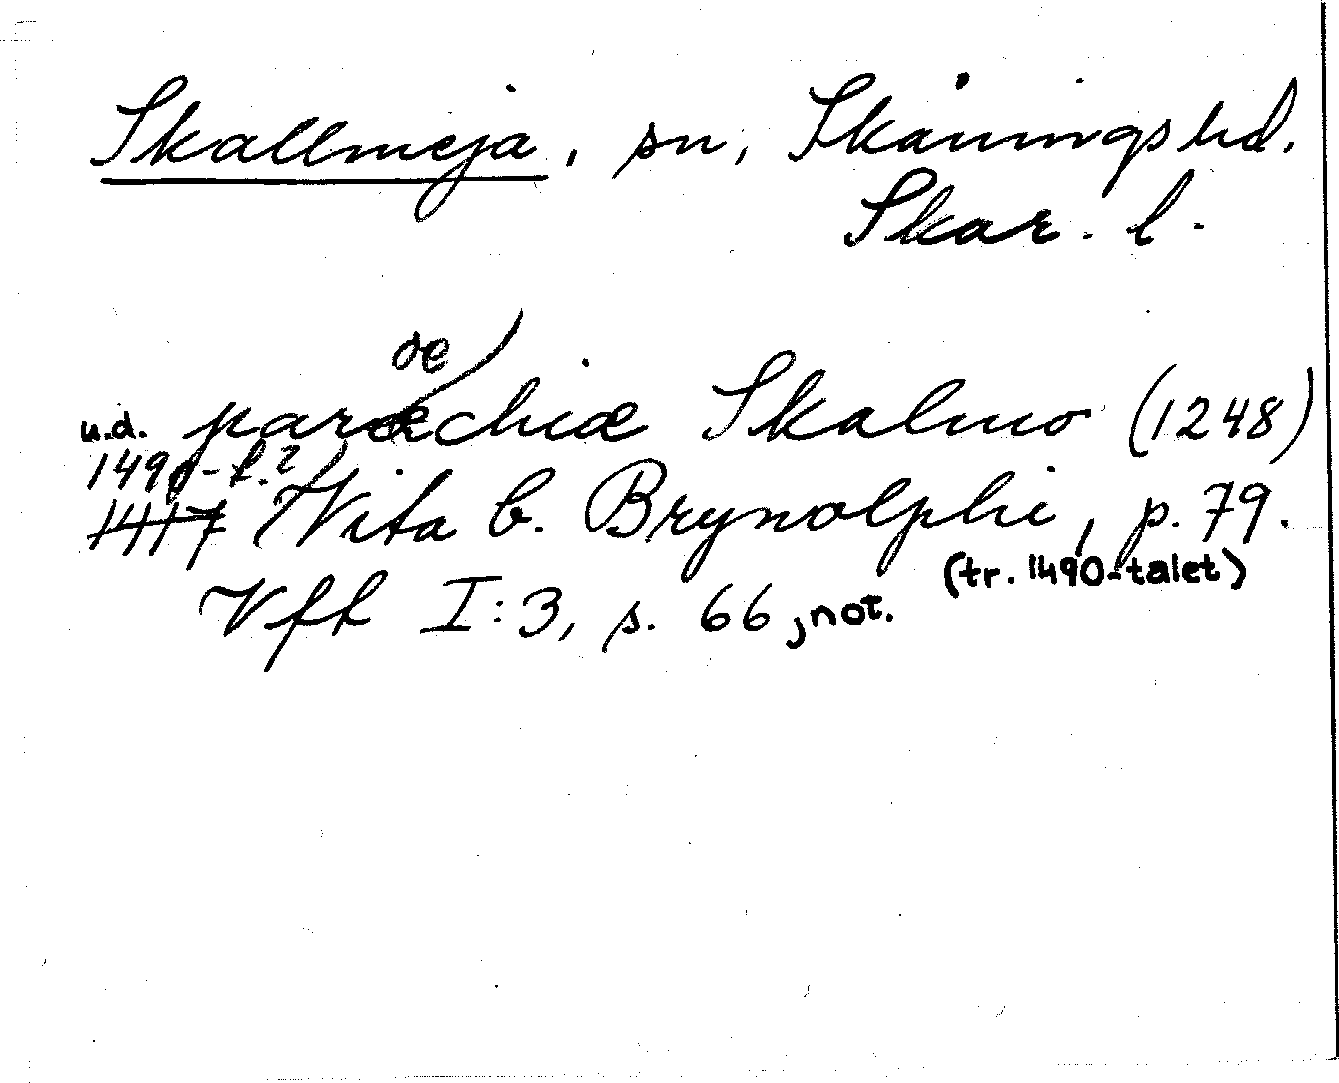 Skallmeja, sn, Skånings hd.
Skar. l.
oe
u.d. paroechiæ Skalmo (1248)
1490-t.?
1417 Vita b. Brynolphi, p. 79.
(tr. 1490-talet)
Vfl I:3, s. 66, not.